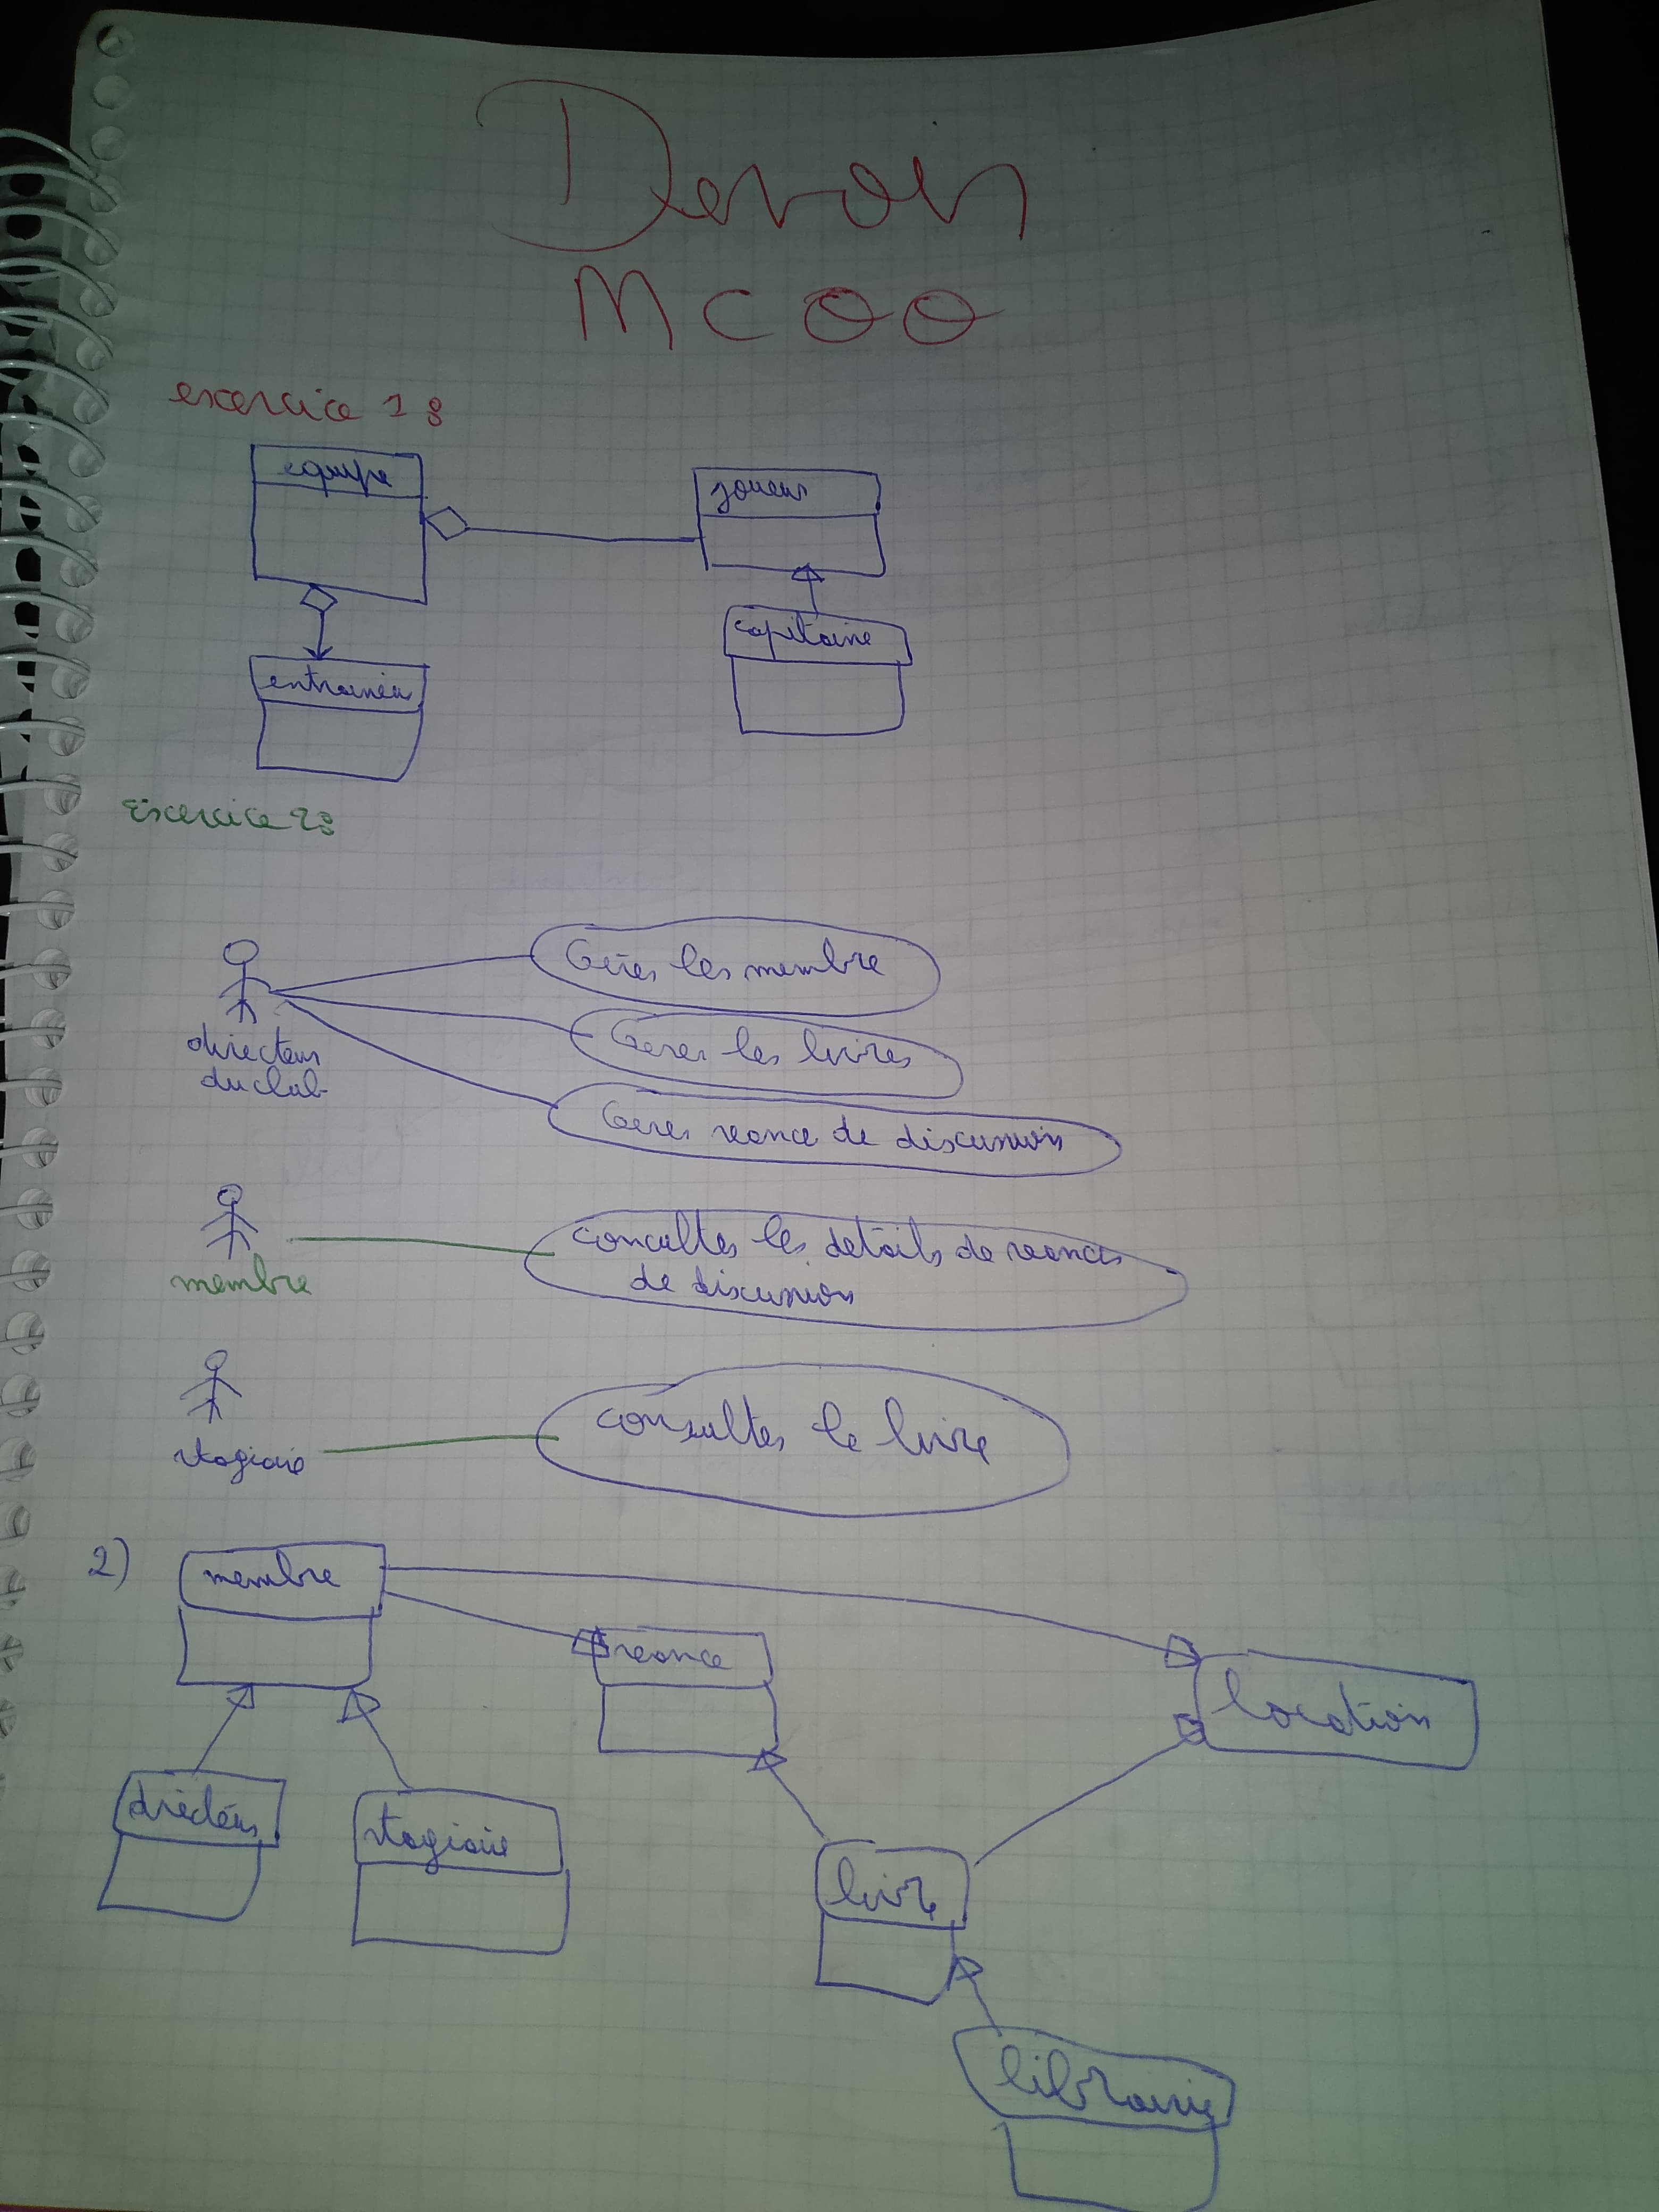 Devoir
MCOO
exercice 1 :
equipe
joueur
capitaine
entraineu
Exercice 2:
Gérer les membre
directeur
du club
Gerer les livres
Gerer seance de discussion
membre
concultes les details de seances
de discussion
stagiaire
consulter le livre
2)
membre
seance
location
directeur
stagiaire
livre
librairie